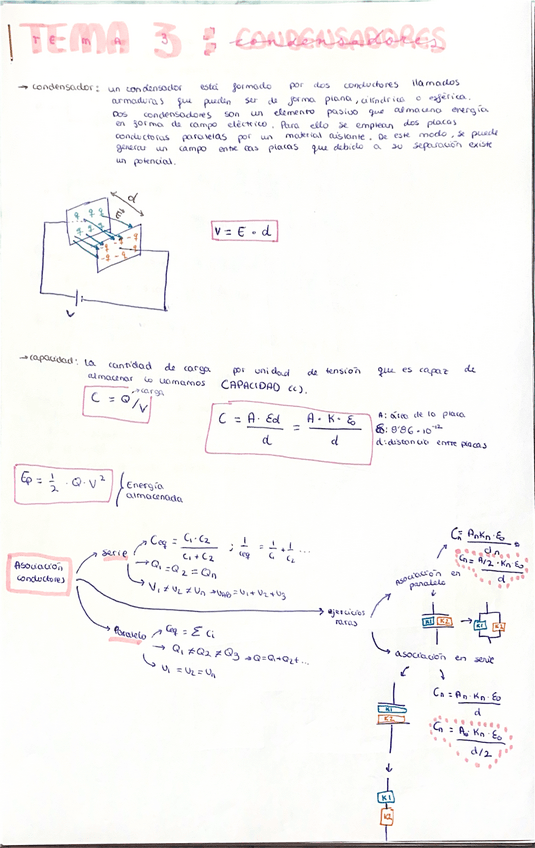 TEMA 3: CONDENSADORES
→ condensador: un condensador está formado por dos conductores llamados
armaduras que pueden ser de forma plana, cilíndrica o esférica.
Dos condensadores son un elemento pasivo que almacena energía
en forma de campo eléctrico. Para ello se emplean dos placas
conductoras paralelas por un material aislante. De este modo, se puede
generar un campo entre las placas que debido a su separación existe
un potencial.
d
E
V
V = E · d
→ capacidad: La cantidad de carga por unidad de tensión que es capaz de
almacenar lo llamamos CAPACIDAD (c).
C = Q/V → carga
C = A · Ed / d = A · K · ε₀ / d
A: área de la placa
ε₀: 8'86 · 10⁻¹²
d: distancia entre placas
Ep = 1/2 · Q · V²
Energía
almacenada
Asociación
conductores
serie
Ceq = C₁ · C₂ / C₁ + C₂ ; 1/Ceq = 1/C₁ + 1/C₂ ...
Q₁ = Q₂ = Qn
V₁ ≠ V₂ ≠ Vn → VAB = V₁ + V₂ + V₃
Paralelo
Ceq = Σ Ci
Q₁ ≠ Q₂ ≠ Q₃ → Q = Q₁ + Q₂ + ...
V₁ = V₂ = Vn
ejercicios
raros
asociación en
paralelo
Cn = An · Kn · ε₀ / dn
Cn = A/2 · Kn · ε₀ / d
K1 K2 → K1 K2
asociación en serie
K1
K2
Cn = An · Kn · ε₀ / d
Cn = A₀ · Kn · ε₀ / d/2
K1
K2